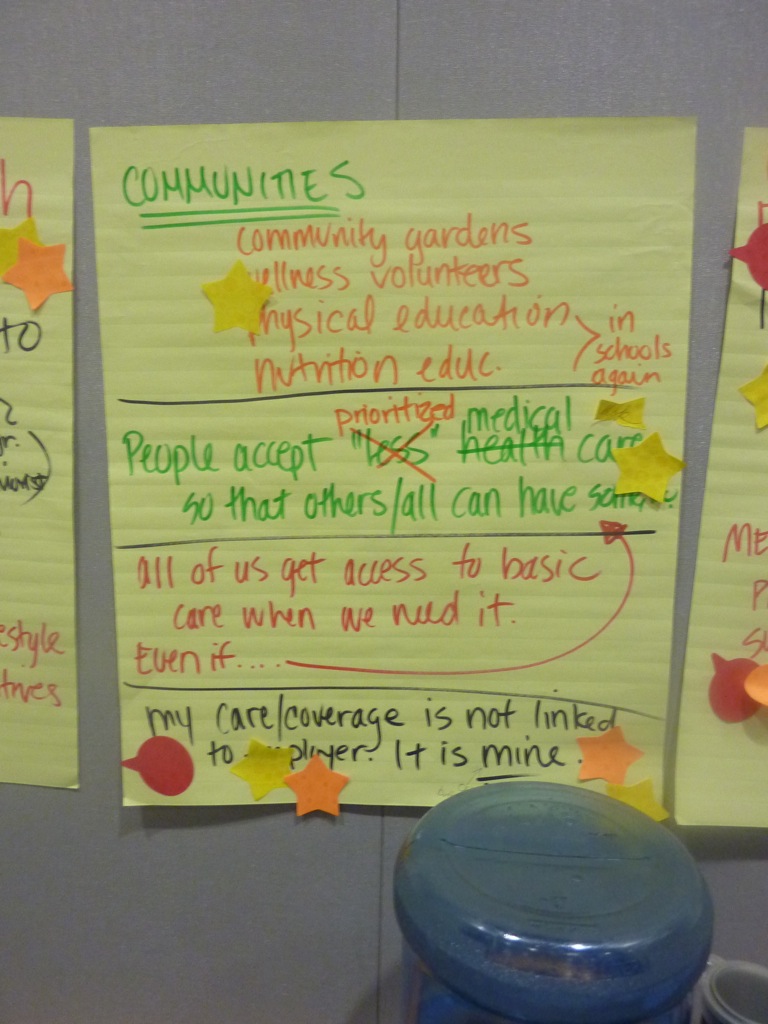 COMMUNITIES
community gardens
wellness volunteers
physical education
nutrition educ.
in
schools
again
prioritized medical
People accept "less" health care
so that others/all can have some.
all of us get access to basic
care when we need it.
Even if....
my care/coverage is not linked
to employer. It is mine.
h
to
jr.
estyle
tives
ME
P